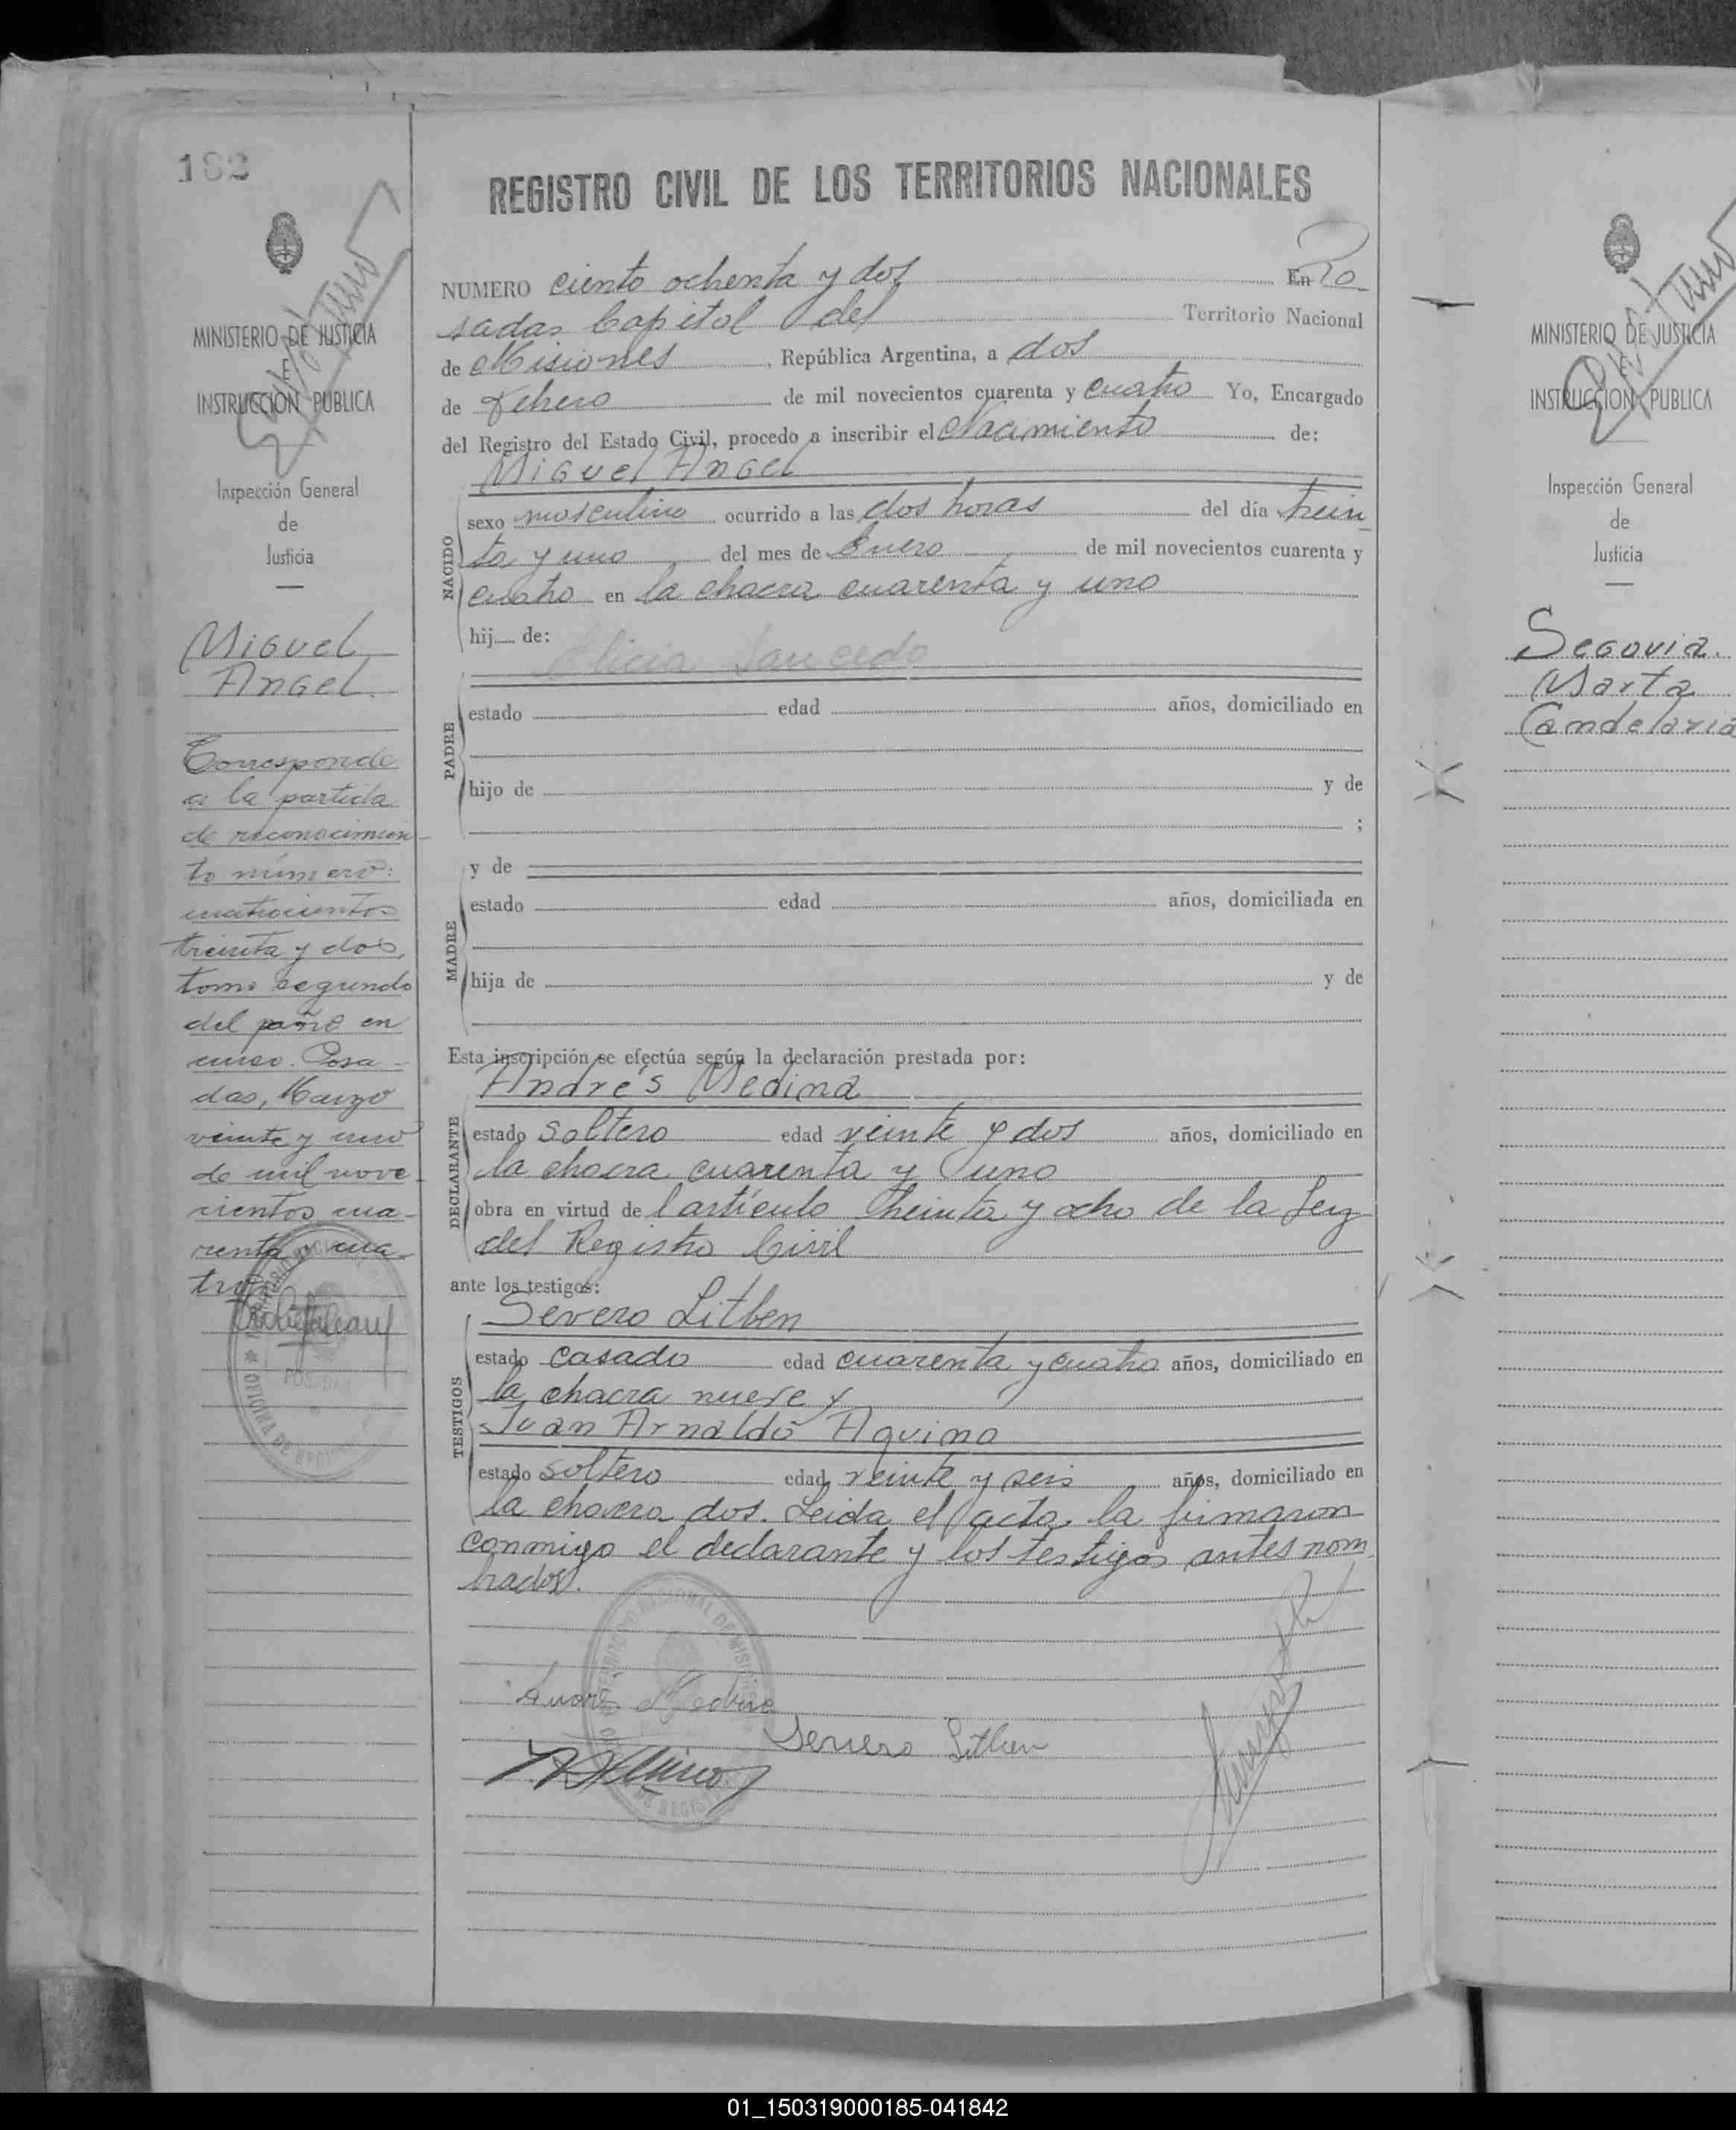 182
MINISTERIO DE JUSTICIA
E
INSTRUCCION PUBLICA
Inspección General
de
Justicia
Miguel
Angel
Corresponde
a la partida
de reconocimien-
to número:
cuatrocientos
treinta y dos,
tomo segundo
del año en
curso. Posa-
das, Marzo
veinte y uno
de mil nove-
cientos cua-
renta y cua-
tro
REGISTRO CIVIL DE LOS TERRITORIOS NACIONALES
NUMERO ciento ochenta y dos En Po
sadas Capital del Territorio Nacional
de Misiones, República Argentina, a dos
de Febrero de mil novecientos cuarenta y cuatro Yo, Encargado
del Registro del Estado Civil, procedo a inscribir el Nacimiento de:
Miguel Angel
NACIDO
sexo masculino ocurrido a las dos horas del día trein
ta y uno del mes de Enero de mil novecientos cuarenta y
cuatro en la chacra cuarenta y uno
hij de:
Elicia Saucedo
PADRE
estado edad años, domiciliado en
hijo de y de
;
y de
MADRE
estado edad años, domiciliada en
hija de y de
Esta inscripción se efectúa según la declaración prestada por:
Andrés Medina
DECLARANTE
estado soltero edad veinte y dos años, domiciliado en
la chacra cuarenta y uno
obra en virtud de l artículo treinta y ocho de la Ley
del Registro Civil
ante los testigos:
Severo Litben
TESTIGOS
estado casado edad cuarenta y cuatro años, domiciliado en
la chacra nueve y
Juan Arnaldo Aquino
estado soltero edad veinte y seis años, domiciliado en
la chacra dos. Leida el acta, la firmaron
conmigo el declarante y los testigos antes nom
brados.
Medina
Severo Litben
MINISTERIO DE JUSTICIA
E
INSTRUCCION PUBLICA
Inspección General
de
Justicia
Segovia
Marta
Candelaria
01_150319000185-041842